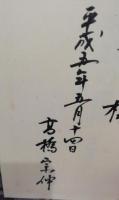 平成五年五月十四日
高橋宗仲